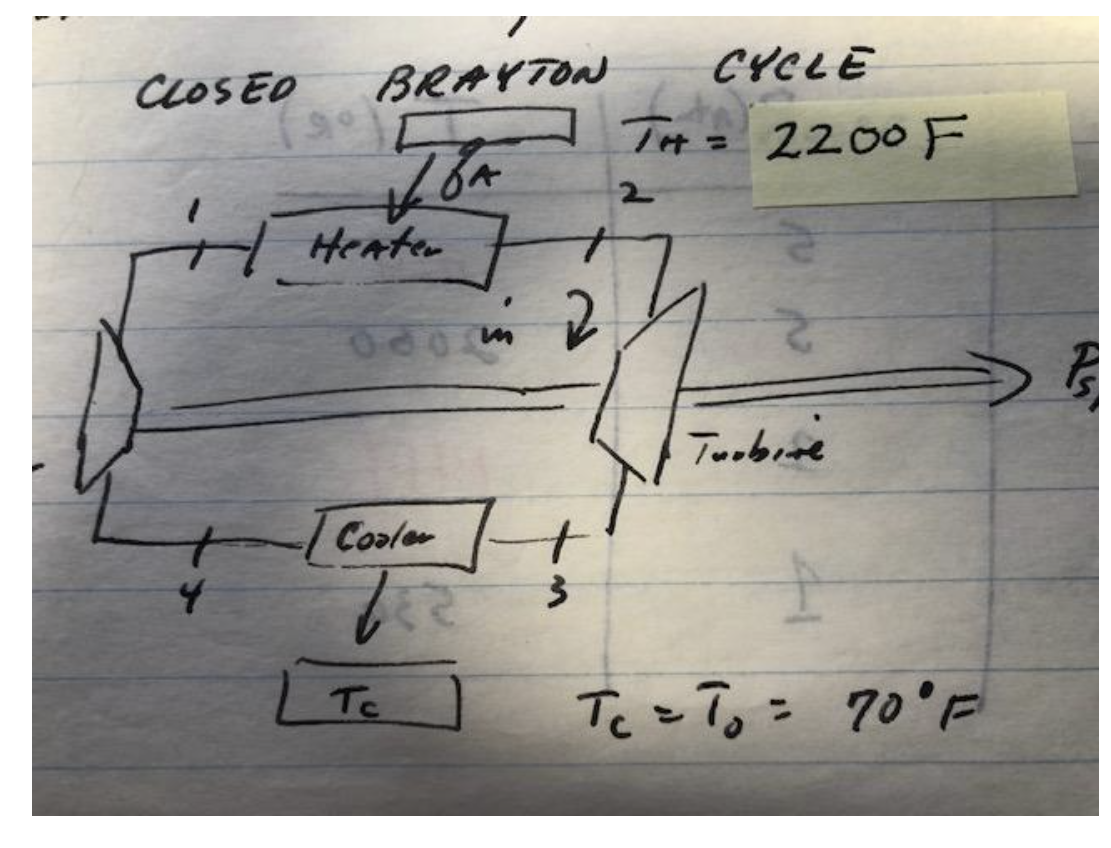 CLOSED BRAYTON CYCLE
TH = 2200 F
1
2
Heater
ṁ
Turbine
Cooler
4
3
Tc
Tc = To = 70°F